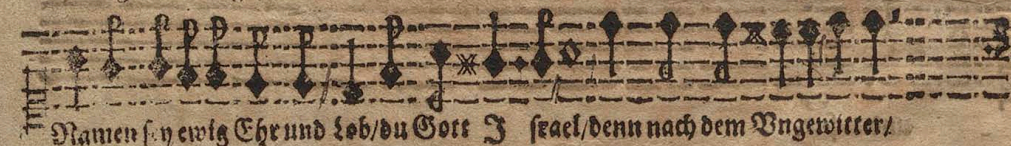 Namen sey ewig Ehr und Lob/du Gott I ſrael/denn nach dem Vngewitter/